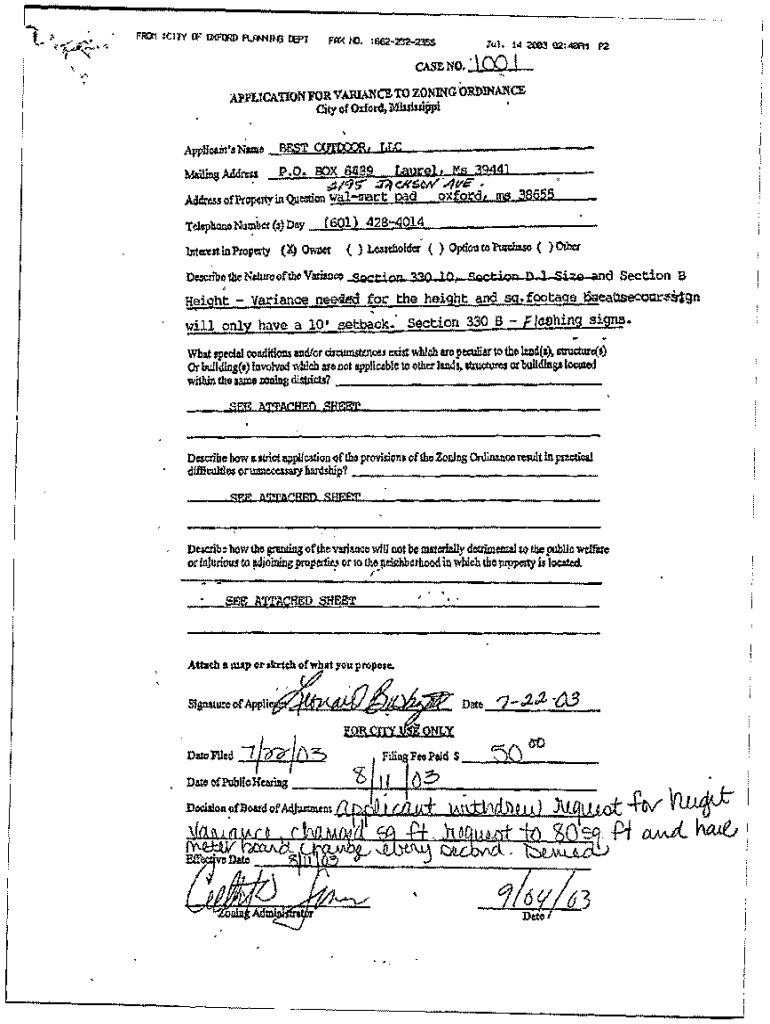 FROM :CITY OF OXFORD PLANNING DEPT FAX NO. :662-232-2355 Jul. 14 2003 02:40PM P2
CASE NO. 1001
APPLICATION FOR VARIANCE TO ZONING ORDINANCE
City of Oxford, Mississippi
Applicant's Name BEST OUTDOOR, LLC
Mailing Address P.O. BOX 6429 Laurel, Ms 39441
2195 JACKSON AVE.
Address of Property in Question Wal-mart pad oxford, ms 38655
Telephone Number (s) Day (601) 428-4014
Interest in Property (X) Owner ( ) Leaseholder ( ) Option to Purchase ( ) Other
Describe the Nature of the Variance Section 330.10, Section D.1 Size and Section B
Height - Variance needed for the height and sq.footage because our sign
will only have a 10' setback. Section 330 B - Flashing signs.
What special conditions and/or circumstances exist which are peculiar to the land(s), structure(s)
Or building(s) involved which are not applicable to other lands, structures or buildings located
within the same zoning districts?
SEE ATTACHED SHEET
Describe how a strict application of the provisions of the Zoning Ordinance result in practical
difficulties or unnecessary hardship?
SEE ATTACHED SHEET
Describe how the granting of the variance will not be materially detrimental to the public welfare
or injurious to adjoining properties or to the neighborhood in which the property is located.
SEE ATTACHED SHEET
Attach a map or sketch of what you propose.
Signature of Applicant Date 7-22-03
FOR CITY USE ONLY
Date Filed 7/22/03 Filing Fee Paid $ 50 00
Date of Public Hearing 8/11/03
Decision of Board of Adjustment applicant withdrew request for height
variance, changed sq ft request to 80 sq ft and have
meter board change every second. Denied
Effective Date 8/11/03
9/04/03
Zoning Administrator Date